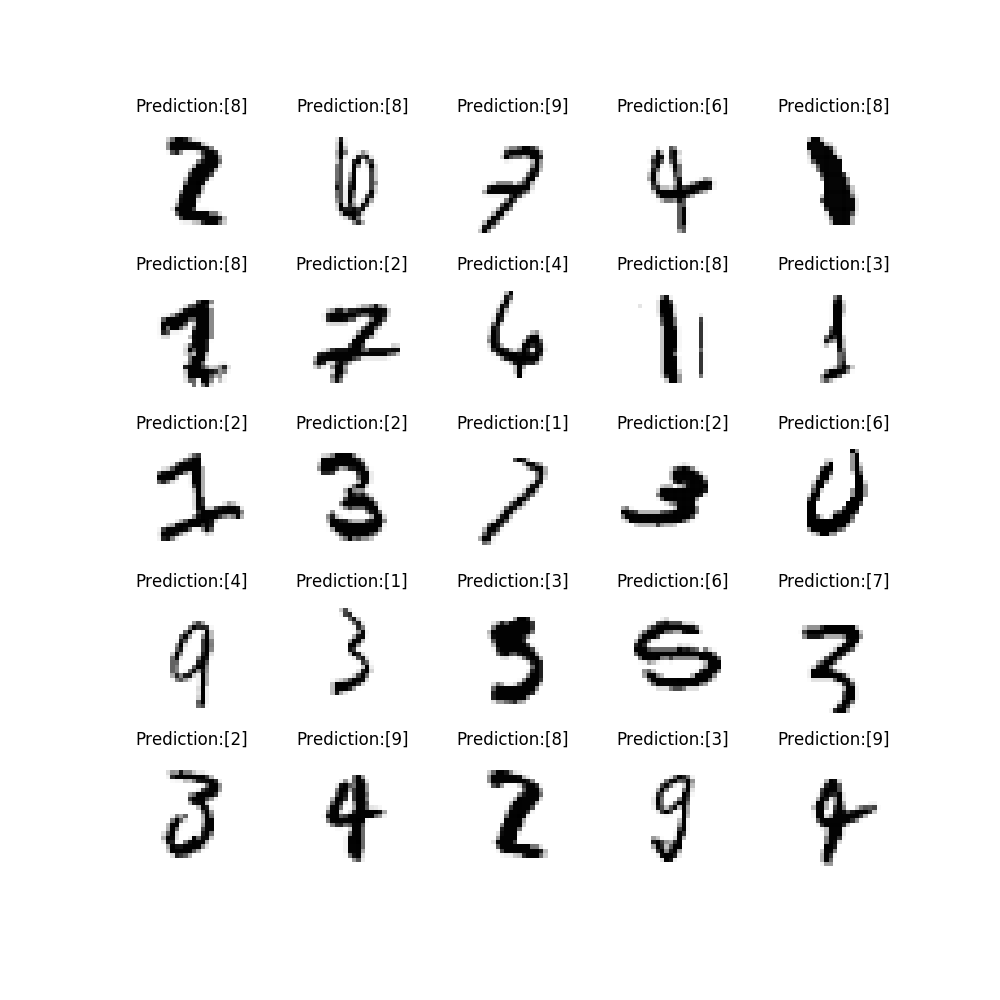 Prediction:[8] Prediction:[8] Prediction:[9] Prediction:[6] Prediction:[8]
2 6 7 4 1
Prediction:[8] Prediction:[2] Prediction:[4] Prediction:[8] Prediction:[3]
1 7 6 1 1
Prediction:[2] Prediction:[2] Prediction:[1] Prediction:[2] Prediction:[6]
1 3 7 3 0
Prediction:[4] Prediction:[1] Prediction:[3] Prediction:[6] Prediction:[7]
9 3 5 5 3
Prediction:[2] Prediction:[9] Prediction:[8] Prediction:[3] Prediction:[9]
3 4 2 9 4